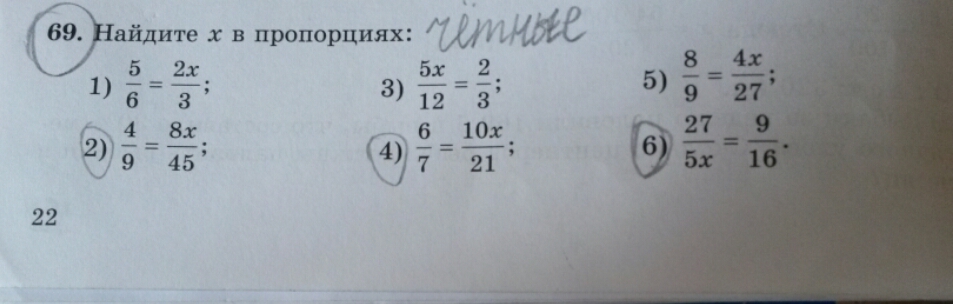 69. Найдите x в пропорциях: чётные
1) 5/6 = 2x/3; 3) 5x/12 = 2/3; 5) 8/9 = 4x/27;
2) 4/9 = 8x/45; 4) 6/7 = 10x/21; 6) 27/5x = 9/16.
22